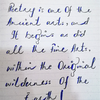 Pottery is one of the
Ancient arts, and
It begins as did
all the Fine Arts,
within the Original
wilderness of the
Earth!